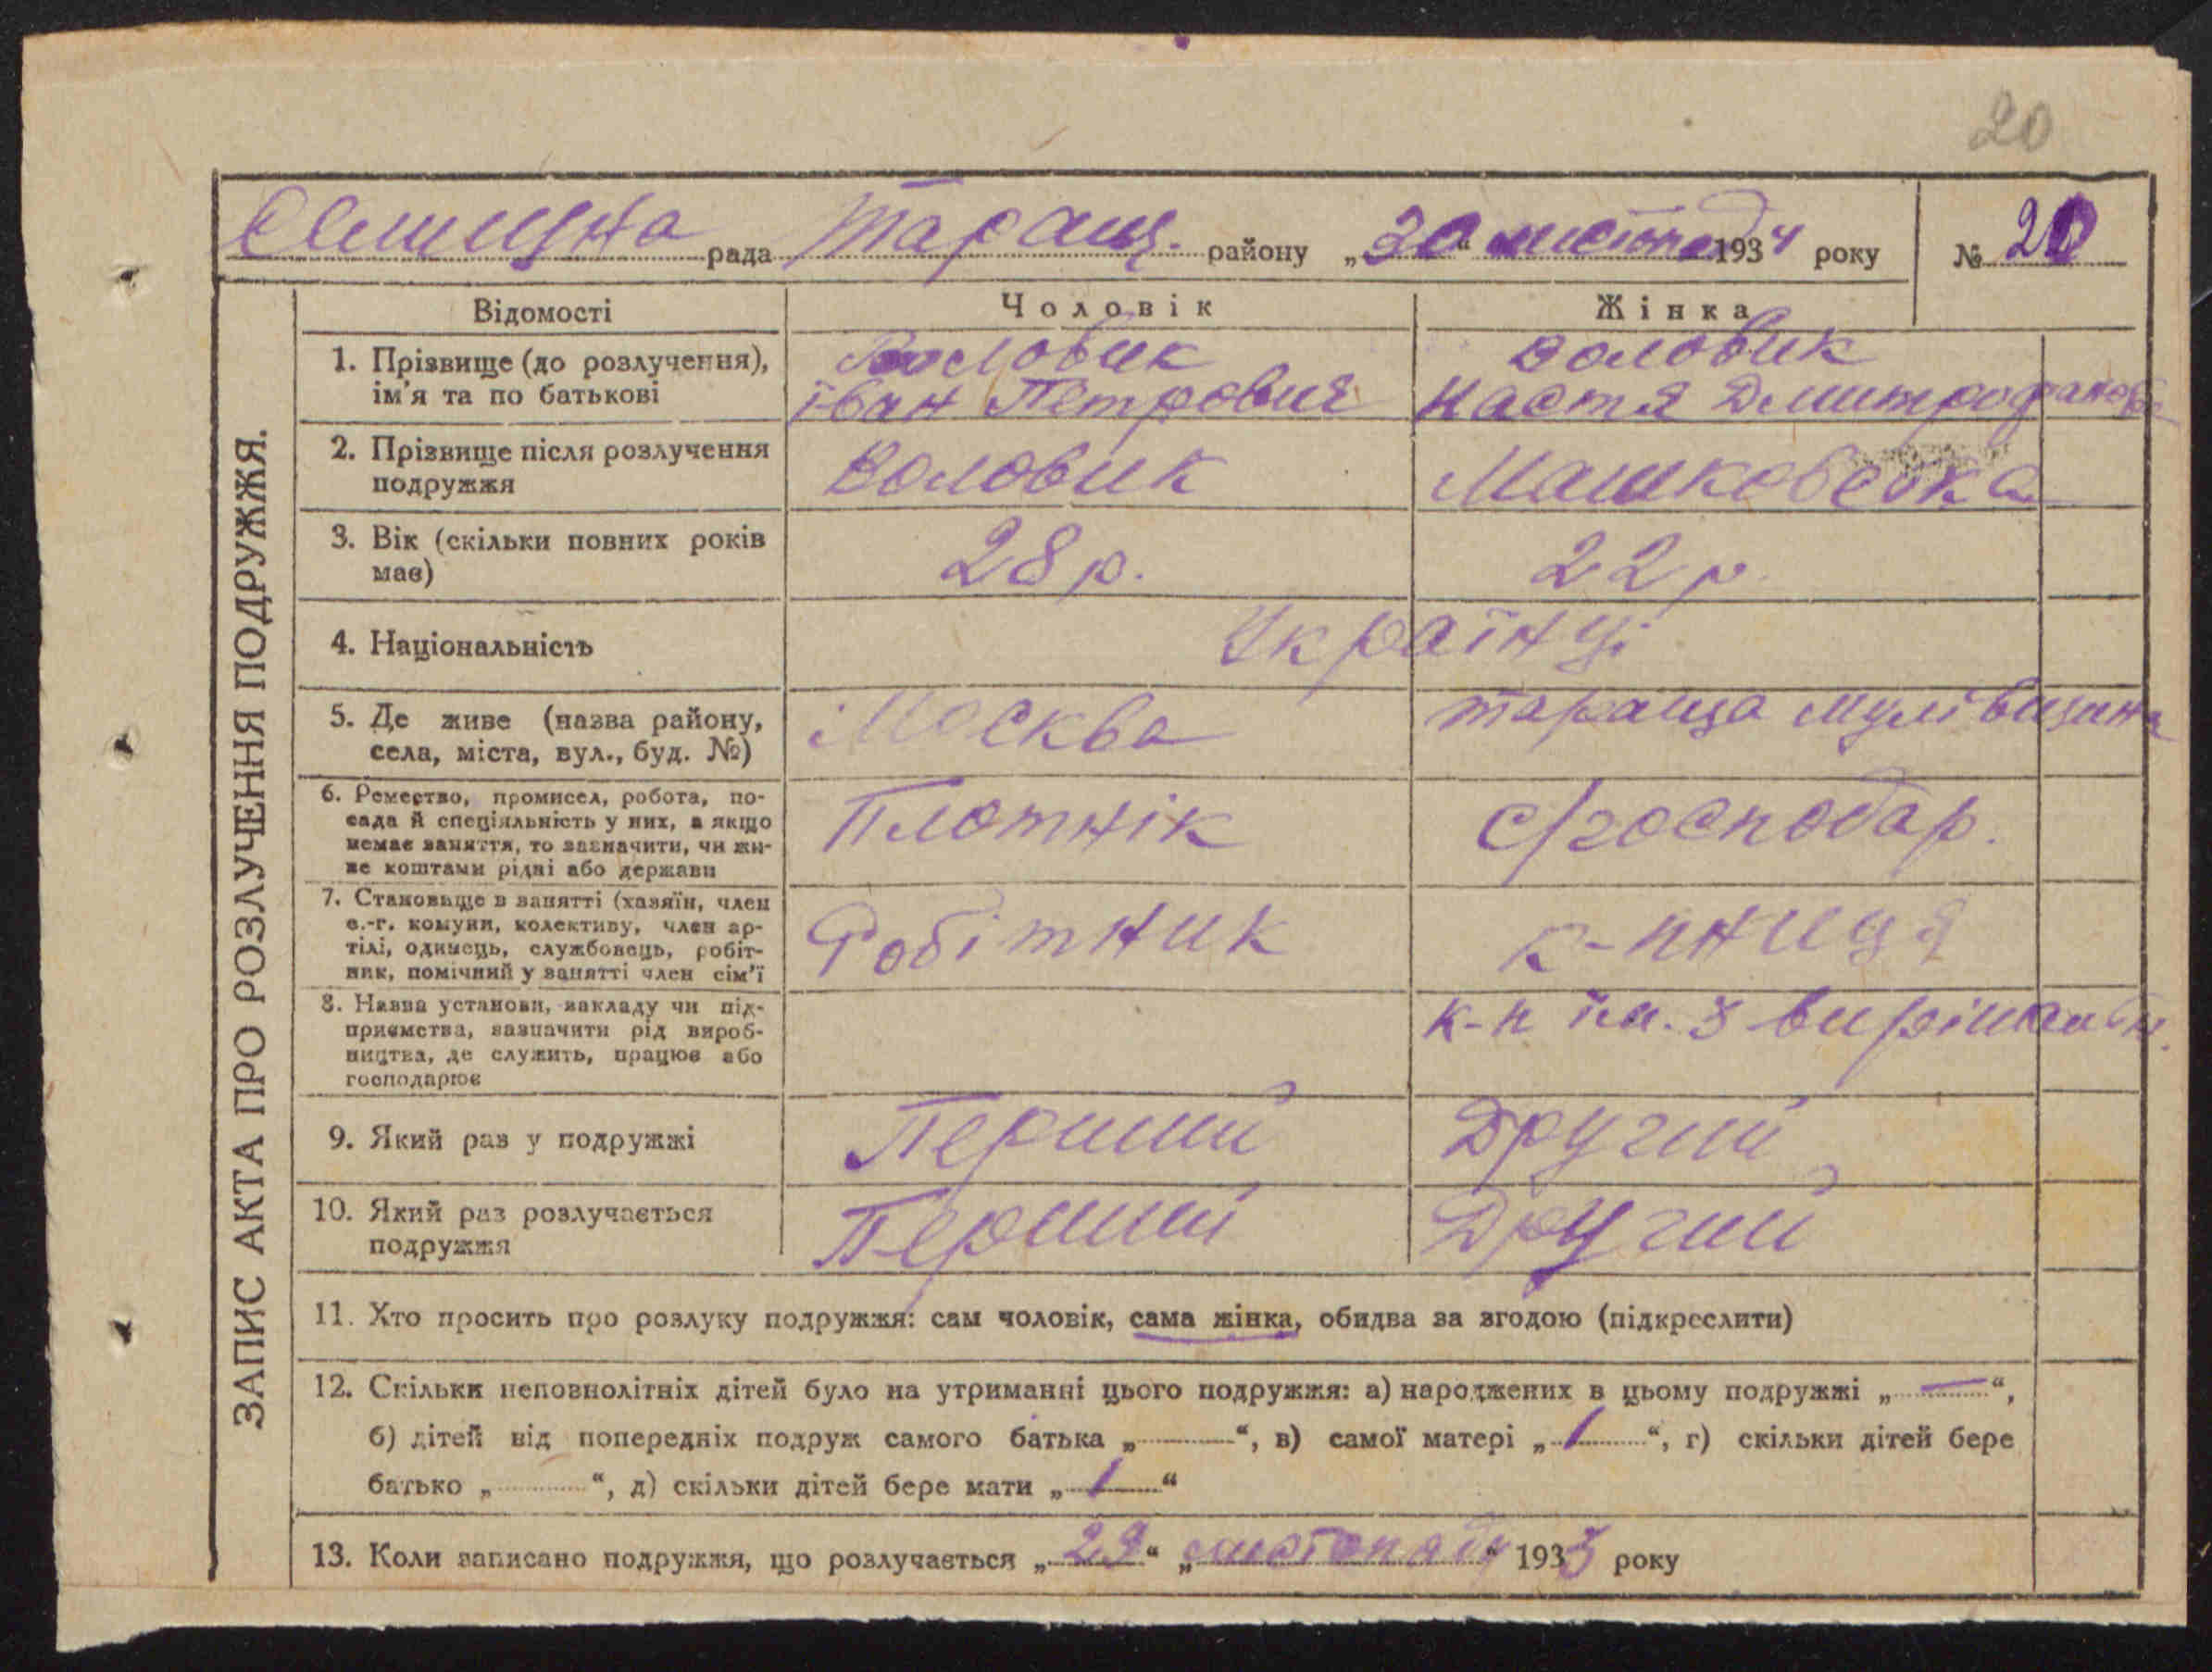 20
Селищна рада Таращ. району „30“ листопад 1934 року № 20
ЗАПИС АКТА ПРО РОЗЛУЧЕННЯ ПОДРУЖЖЯ.
Відомості Чоловік Жінка
1. Прізвище (до розлучення), Воловик Воловик
ім'я та по батькові Іван Петрович Настя Дмитрофановна
2. Прізвище після розлучення
подружжя Воловик Машковська
3. Вік (скільки повних років
має) 28 р. 22 р.
4. Національність Українці
5. Де живе (назва району, Москва тараща
села, міста, вул., буд. №)
6. Ремество, промисел, робота, по-
сада й спеціяльність у них, а якщо Плотнік с/господар.
немає заняття, то зазначити, чи жи-
ве коштами рідні або держави
7. Становище в занятті (хазяїн, член
с.-г. комуни, колективу, член ар- Робітник к-пниця
тілі, одинець, службовець, робіт-
ник, помічний у занятті член сім'ї
8. Назва установи, закладу чи під- к-п ім. 3 вирішальн.
приємства, зазначити рід вироб-
ництва, де служить, працює або
господарює
9. Який раз у подружжі Перший Другий
10. Який раз розлучається Перший Другий
подружжя
11. Хто просить про розлуку подружжя: сам чоловік, сама жінка, обидва за згодою (підкреслити)
12. Скільки неповнолітніх дітей було на утриманні цього подружжя: а) народжених в цьому подружжі „—“,
б) дітей від попередніх подруж самого батька „ “, в) самої матері „1“, г) скільки дітей бере
батько „ “, д) скільки дітей бере мати „1“
13. Коли записано подружжя, що розлучається „29“ „листопаду“ 1933 року